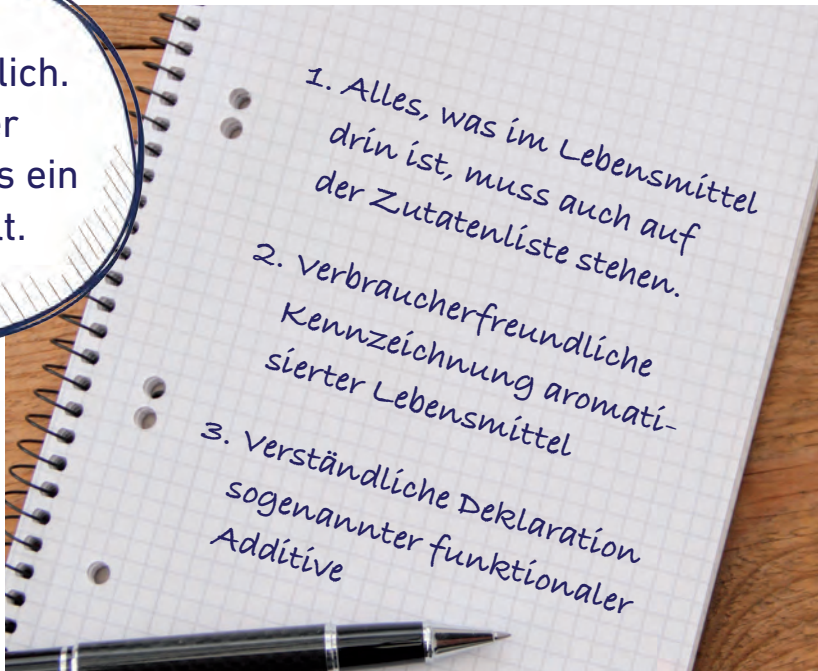 lich.
er
s ein
t.
1. Alles, was im Lebensmittel
drin ist, muss auch auf
der Zutatenliste stehen.
2. Verbraucherfreundliche
Kennzeichnung aromati-
sierter Lebensmittel
3. Verständliche Deklaration
sogenannter funktionaler
Additive